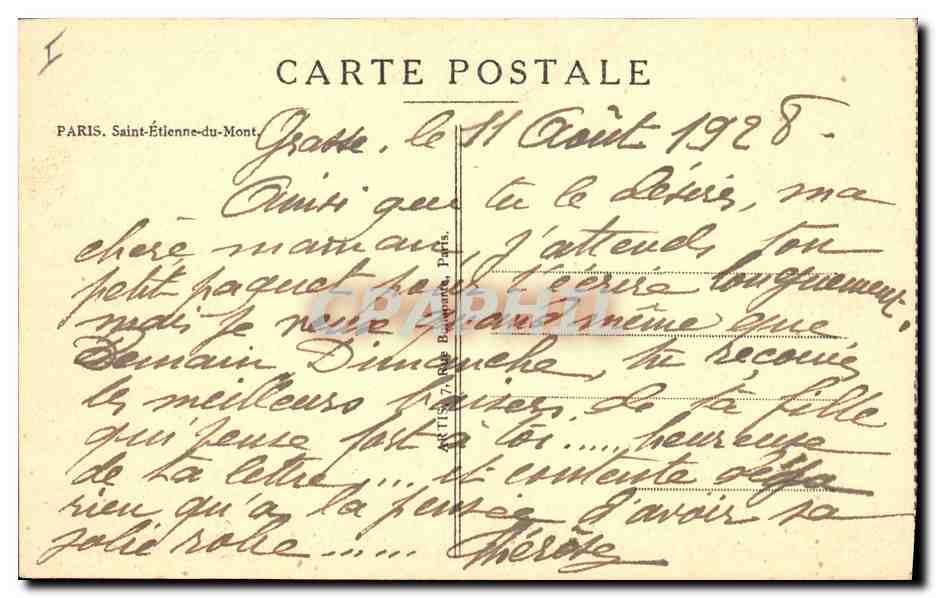 I
CARTE POSTALE
PARIS. Saint-Étienne-du-Mont.
Grasse, le 11 Août 1928.
Ainsi que tu le désires, ma
chère maman, j'attends ton
petit paquet pour t'écrire longuement,
mais je veux quand même que
Demain Dimanche, tu reçoives
les meilleurs baisers de ta fille
qui pense fort à toi..... heureuse
de ta lettre.... et contente déjà
rien qu'à la pensée d'avoir sa
jolie robe...... Thérèse
ARTIS, 7, Rue Bonaparte, Paris.
CPAPHIL